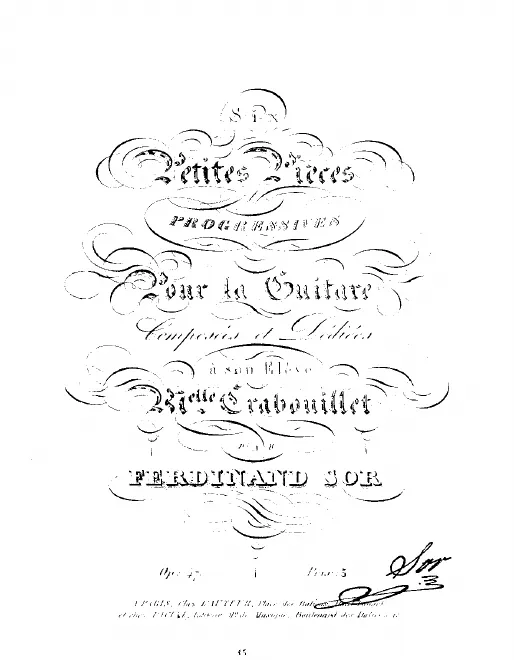 Six
Petites Pièces
PROGRESSIVES
Pour la Guitare
Composées et Dédiées
à son Elève
Melle Crabouillet
PAR
FERDINAND SOR
Op: 47 Prix: 5
Sor
A PARIS, chez l'AUTEUR, Place des
et chez PACINI, Editeur Md de Musique, Boulevard des Italiens
45